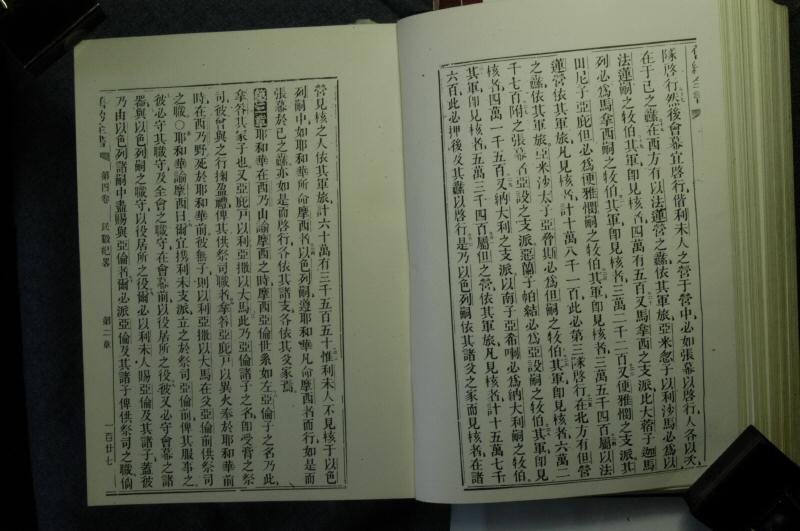 隊啓行然後會幕宜啓行偕利未人之營于營中必如張幕以啓行人各以次
在于己之纛在西方有以法蓮營之纛依其軍旅亞米忽子以利沙馬必為以
法蓮嗣之牧伯其軍即見核者四萬有五百又馬拿西之支派此大蓿子迦馬
列必為馬拿西嗣之牧伯其軍即見核者三萬二千二百又便雅憫之支派其
田尼子亞庇但必為便雅憫嗣之牧伯其軍即見核者三萬五千四百屬以法
蓮營依其軍旅凡見核者計十萬八千一百此必第三隊啓行在北方有但營
之纛依其軍旅亞米沙太子亞脅其必為但嗣之牧伯其軍即見核者六萬二
千七百附之張幕者亞設之支派亞蘭子帕結必為亞設嗣之牧伯其軍即見
核者四萬一千五百又納大利之支派以南子亞希喇必為納大利嗣之牧伯
其軍即見核者五萬三千四百屬但之營依其軍旅凡見核者計十五萬七千
六百此必押後及其纛以啓行是乃以色列嗣依其諸父之家而見核者在諸
營見核之人依其軍旅計六十萬有三千五百五十惟利未人不見核于以色
列嗣中如耶和華所命摩西者以色列嗣遵耶和華凡命摩西者而行如是而
張幕於己之纛亦如是而啓行各依其諸支各依其父家焉
第三章 耶和華在西乃山諭摩西之時摩西亞倫世系如左亞倫子之名乃此
拿答其冢子也又亞庇戶以利亞撒以大馬此乃亞倫諸子之名即受膏之祭
司彼會與之行掬盈禮俾其供祭司職者拿答亞庇戶以異火奉於耶和華前
時在西乃野死於耶和華前彼無子則以利亞撒以大馬在父亞倫前供祭司
之職○耶和華諭摩西曰爾宜携利未支派立之於祭司亞倫前俾其服事之
彼必守其職守及全會之職守在會幕前以役居所之役彼又必守會幕之諸
器與以色列嗣之職守以役居所之役爾必以利未人賜亞倫及其諸子蓋彼
乃由以色列諸嗣中盡賜與亞倫者爾必派亞倫及其諸子俾供祭司之職倘
第四卷 民數紀畧 第二章 一百廿七